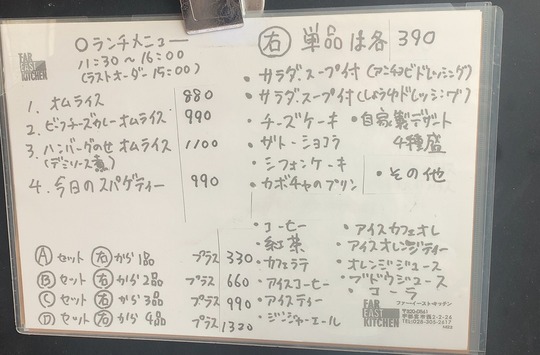 FAR EAST KITCHEN
○ランチメニュー
11:30〜16:00
(ラストオーダー 15:00)
1. オムライス 880
2. ビーフチーズカレーオムライス 990
3. ハンバーグのせオムライス 1100
(デミソース煮)
4. 今日のスパゲティー 990
Ⓐセット ㊨から1品 プラス 330
Ⓑセット ㊨から2品 プラス 660
Ⓒセット ㊨から3品 プラス 990
Ⓓセット ㊨から4品 プラス 1320
㊨ 単品は各 390
・サラダ、スープ付(アンチョビドレッシング)
・サラダ、スープ付(しょうゆドレッシング)
・チーズケーキ
・ガトーショコラ
・シフォンケーキ
・カボチャのプリン
・自家製デザート
4種盛
・その他
・コーヒー
・紅茶
・カフェラテ
・アイスコーヒー
・アイスティー
・ジンジャーエール
・アイスカフェオレ
・アイスオレンジティー
・オレンジジュース
・ブドウジュース
・コーラ
FAR EAST KITCHEN
ファーイースト・キッチン